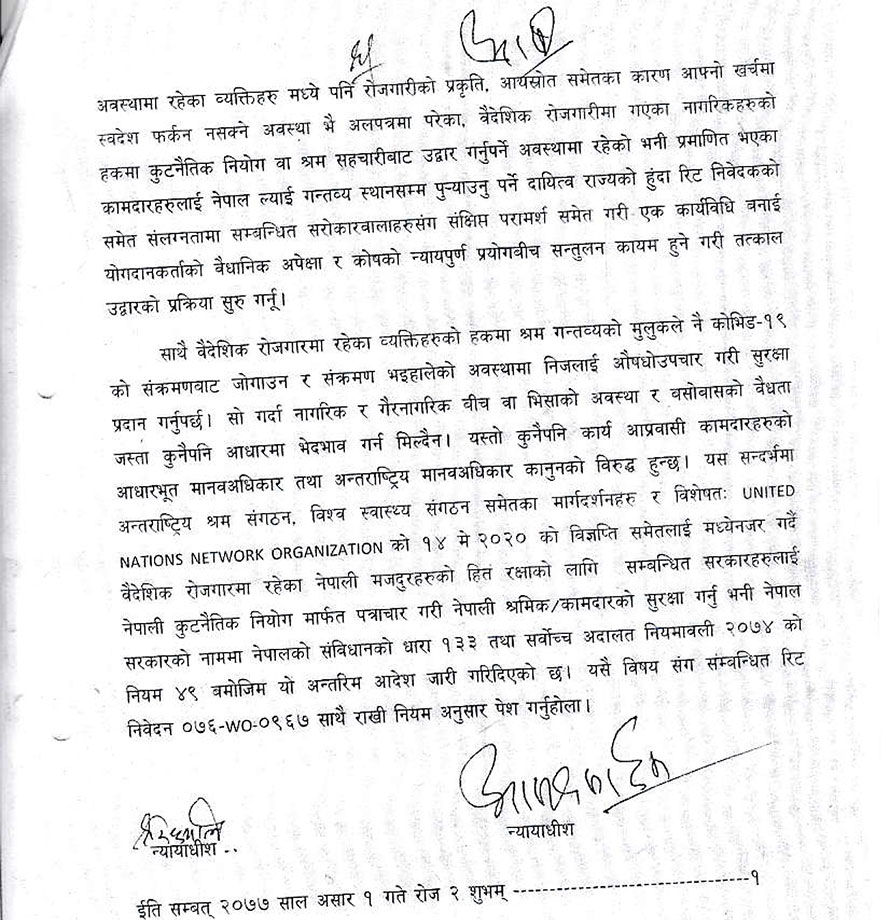 अवस्थामा रहेका व्यक्तिहरु मध्ये पनि रोजगारीको प्रकृति, आयस्रोत समेतका कारण आफ्नो खर्चमा
स्वदेश फर्कन नसक्ने अवस्था भै अलपत्रमा परेका, वैदेशिक रोजगारीमा गएका नागरिकहरुको
हकमा कुटनैतिक नियोग वा श्रम सहचारीबाट उद्वार गर्नुपर्ने अवस्थामा रहेको भनी प्रमाणित भएका
कामदारहरुलाई नेपाल ल्याई गन्तव्य स्थानसम्म पुऱ्याउनु पर्ने दायित्व राज्यको हुंदा रिट निवेदकको
समेत संलग्नतामा सम्बन्धित सरोकारवालाहरुसंग संक्षिप्त परामर्श समेत गरी एक कार्यविधि बनाई
योगदानकर्ताको वैधानिक अपेक्षा र कोषको न्यायपुर्ण प्रयोगबीच सन्तुलन कायम हुने गरी तत्काल
उद्वारको प्रक्रिया सुरु गर्नू।
साथै वैदेशिक रोजगारमा रहेका व्यक्तिहरुको हकमा श्रम गन्तव्यको मुलुकले नै कोभिड-१९
को संक्रमणबाट जोगाउन र संक्रमण भइहालेको अवस्थामा निजलाई औषधोउपचार गरी सुरक्षा
प्रदान गर्नुपर्छ। सो गर्दा नागरिक र गैरनागरिक वीच वा भिसाको अवस्था र बसोबासको वैधता
जस्ता कुनैपनि आधारमा भेदभाव गर्न मिल्दैन। यस्तो कुनैपनि कार्य आप्रवासी कामदारहरुको
आधारभूत मानवअधिकार तथा अन्तराष्ट्रिय मानवअधिकार कानुनको विरुद्ध हुन्छ। यस सन्दर्भमा
अन्तराष्ट्रिय श्रम संगठन, विश्व स्वास्थ्य संगठन समेतका मार्गदर्शनहरु र विशेषतः UNITED
NATIONS NETWORK ORGANIZATION को १४ मे २०२० को विज्ञप्ति समेतलाई मध्येनजर गर्दै
वैदेशिक रोजगारमा रहेका नेपाली मजदुरहरुको हित रक्षाको लागि सम्बन्धित सरकारहरुलाई
नेपाली कुटनैतिक नियोग मार्फत पत्राचार गरी नेपाली श्रमिक/कामदारको सुरक्षा गर्नु भनी नेपाल
सरकारको नाममा नेपालको संविधानको धारा १३३ तथा सर्वोच्च अदालत नियमावली २०७४ को
नियम ४९ बमोजिम यो अन्तरिम आदेश जारी गरिदिएको छ। यसै विषय संग सम्बन्धित रिट
निवेदन ०७६-WO-०९६७ साथै राखी नियम अनुसार पेश गर्नुहोला।
न्यायाधीश
न्यायाधीश ..
ईति सम्बत् २०७७ साल असार १ गते रोज २ शुभम् ------------------------------१